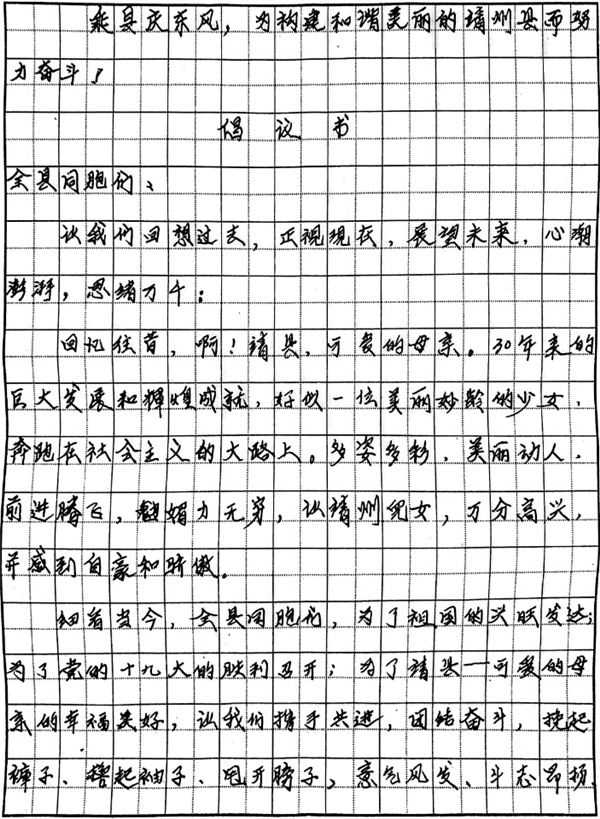 乘县庆东风，为构建和谐美丽的靖州县而努
力奋斗！
倡议书
全县同胞们、
让我们回想过去，正视现在，展望未来，心潮
澎湃，思绪万千：
回忆往昔，啊！靖县，可爱的母亲。30年来的
巨大发展和辉煌成就，好似一位美丽妙龄的少女，
奔跑在社会主义的大路上。多姿多彩，美丽动人，
前进腾飞，媚力无穷，让靖州儿女，万分高兴，
并感到自豪和骄傲。
细看当今，全县同胞们，为了祖国的兴旺发达；
为了党的十九大的胜利召开；为了靖县一可爱的母
亲的幸福美好，让我们携手共进，团结奋斗，挽起
裤子、撸起袖子、甩开膀子，意气风发、斗志昂扬，